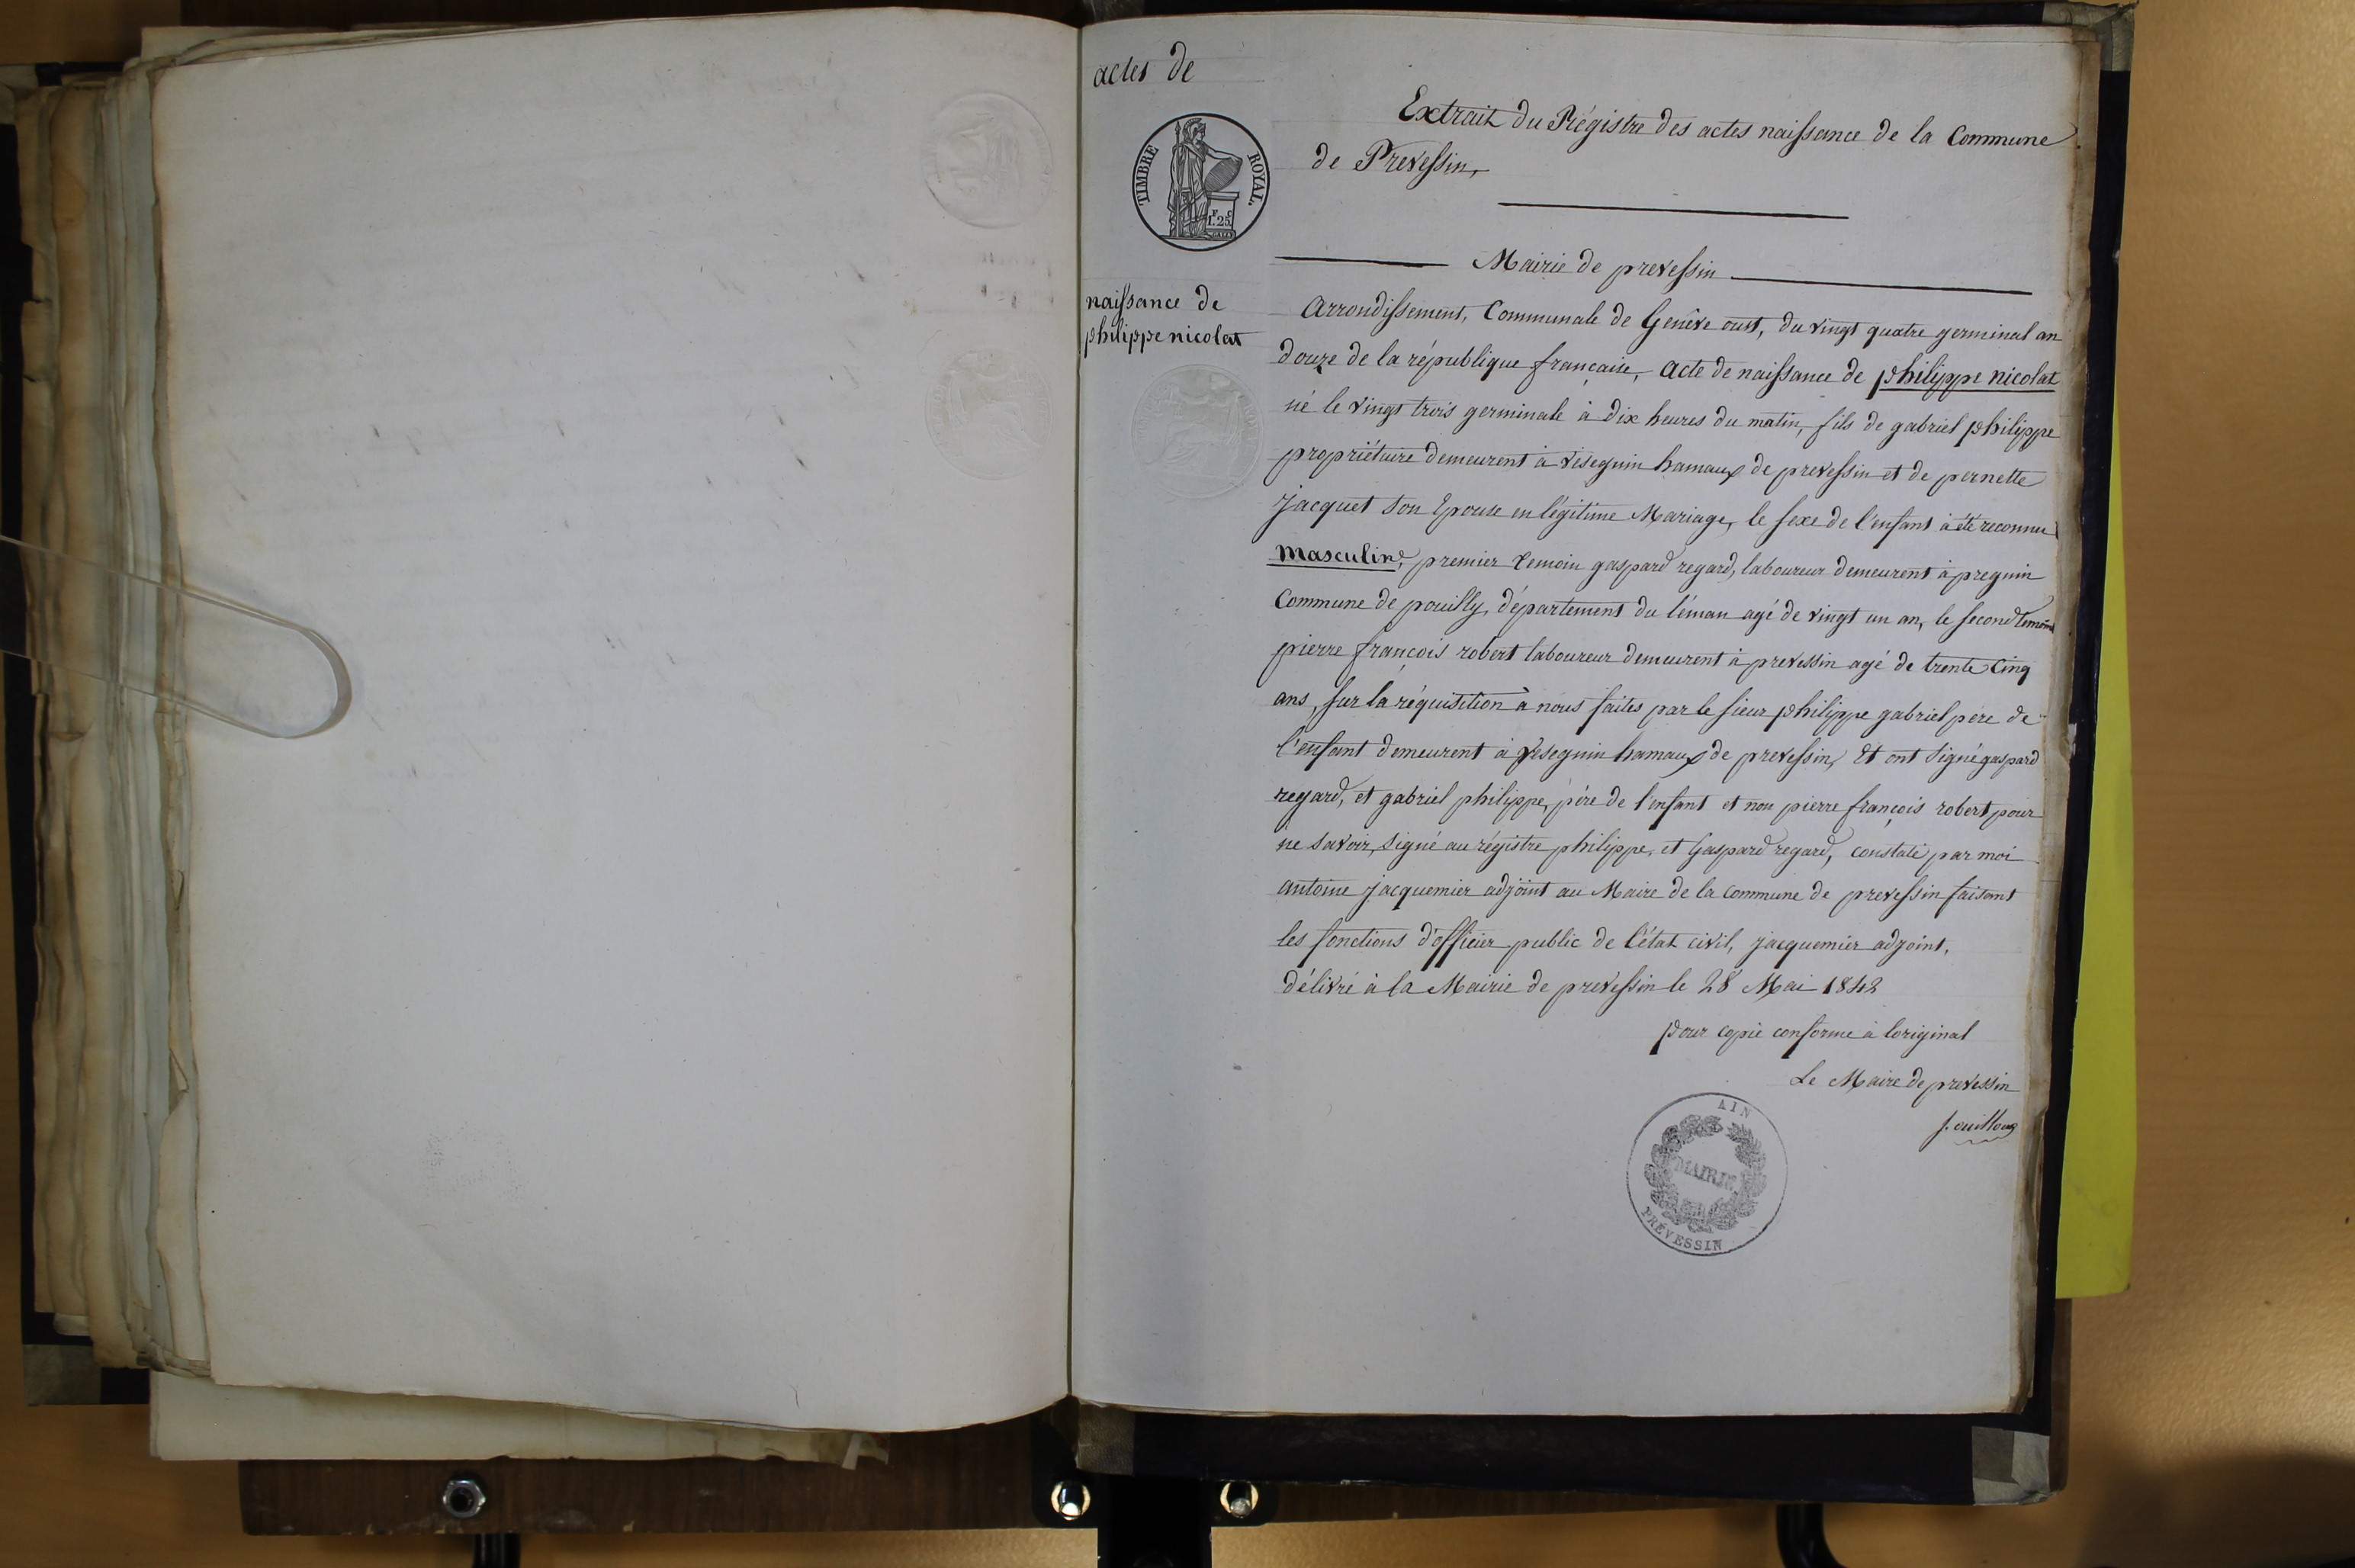 actes de
TIMBRE ROYAL.
F. C.
1.25
naissance de
philippe nicolat
Extrait du Régistre des actes naissance de la Commune
de Prevessin,
Mairie de prevessin
Arrondissement, Communale de Genêve oust, du vingt quatre germinal an
douze de la république francaise, acte de naissance de philippe nicolat
né le vingt trois germinale à dix heures du matin, fils de gabriel philippe
propriétaire demeurent à veseguin hamaux de prevessin et de pernette
jacquet son Epouse en légitime Mariage, le sexe de l'enfant à été reconnu
masculine, premier temoin gaspard regard, laboureur demeurent à preguin
Commune de pouilly, département du léman agé de vingt un an, le second temoin
pierre françois robert laboureur demeurent à prevessin agé de trente cinq
ans, sur la réquisition à nous faites par le sieur philippe gabriel père de
l'enfant demeurent à veseguin hamaux de prevessin, Et ont signé gaspard
regard, et gabriel philippe, père de l'enfant et non pierre françois robert pour
ne savoir, signé au régistre philippe, et Gaspard regard, constaté par moi
antoine jacquemier adjoint au Maire de la commune de prevessin faisant
les fonctions d'officier public de l'état civil, jacquemier adjoint,
délivré à la Mairie de prevessin le 28 Mai 1842
pour copie conforme à loriginal
Le Maire de prevessin
AIN
MAIRIE
PRÉVESSIN